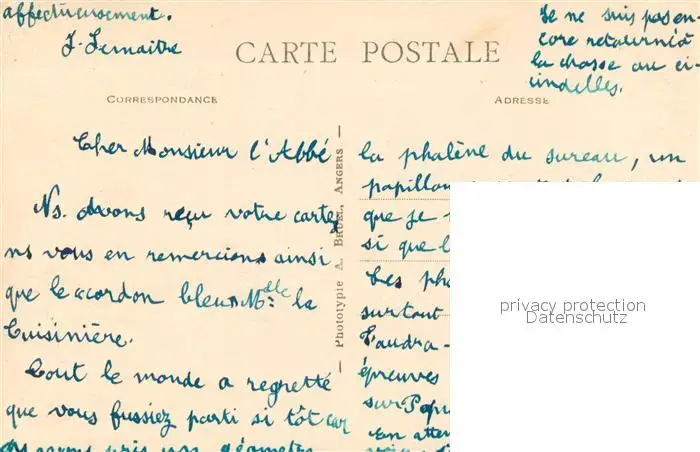 affectueusement.
J. Lemaitre
CARTE POSTALE
Je ne suis pas en-
core retourné à
la chasse au ci-
cindelles.
CORRESPONDANCE
ADRESSE
Cher Monsieur l'Abbé
Ns. avons reçu votre carte,
ns vous en remercions ainsi
que le cordon bleu Melle la
Cuisinière.
Tout le monde a regretté
que vous fussiez parti si tôt car
avons pris un géomètre
Phototypie A. BRUEL, ANGERS
la phalène du sureau, un
papillon
que je
si que l
Les pha
surtout
Faudra-
épreuves
sur Popu
En atten
privacy protection
Datenschutz